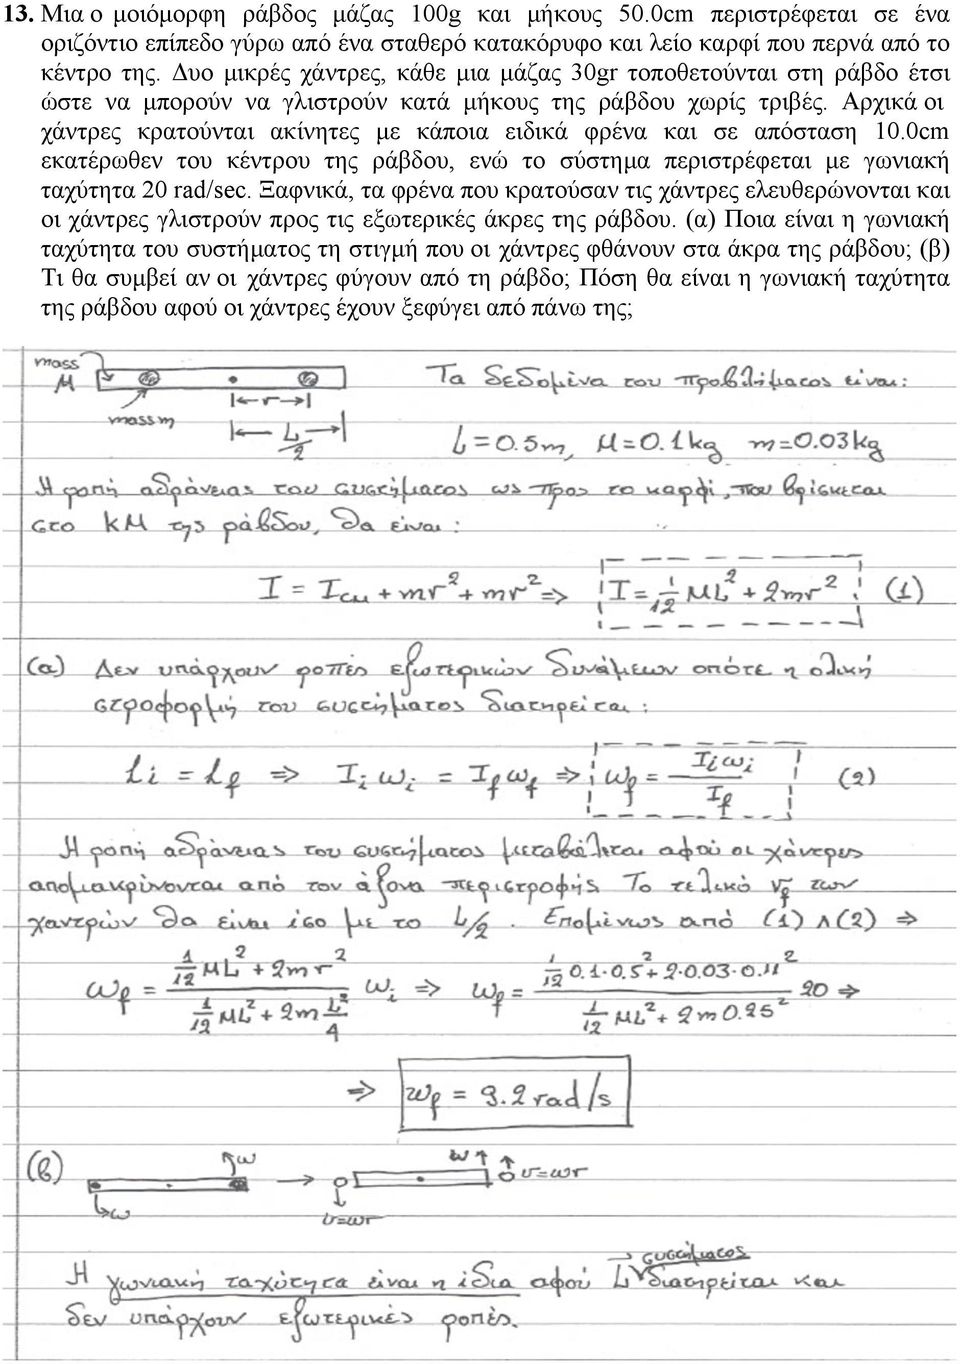 13. Μια ο μοιόμορφη ράβδος μάζας 100g και μήκους 50.0cm περιστρέφεται σε ένα
οριζόντιο επίπεδο γύρω από ένα σταθερό κατακόρυφο και λείο καρφί που περνά από το
κέντρο της. Δυο μικρές χάντρες, κάθε μια μάζας 30gr τοποθετούνται στη ράβδο έτσι
ώστε να μπορούν να γλιστρούν κατά μήκους της ράβδου χωρίς τριβές. Αρχικά οι
χάντρες κρατούνται ακίνητες με κάποια ειδικά φρένα και σε απόσταση 10.0cm
εκατέρωθεν του κέντρου της ράβδου, ενώ το σύστημα περιστρέφεται με γωνιακή
ταχύτητα 20 rad/sec. Ξαφνικά, τα φρένα που κρατούσαν τις χάντρες ελευθερώνονται και
οι χάντρες γλιστρούν προς τις εξωτερικές άκρες της ράβδου. (α) Ποια είναι η γωνιακή
ταχύτητα του συστήματος τη στιγμή που οι χάντρες φθάνουν στα άκρα της ράβδου; (β)
Τι θα συμβεί αν οι χάντρες φύγουν από τη ράβδο; Πόση θα είναι η γωνιακή ταχύτητα
της ράβδου αφού οι χάντρες έχουν ξεφύγει από πάνω της;
mass M
mass m
r
L/2
Τα δεδομένα του προβλήματος είναι:
L = 0.5m, M = 0.1kg m = 0.03kg
Η ροπή αδράνειας του συστήματος ως προς το καρφί, που βρίσκεται
στο ΚΜ της ράβδου, θα είναι:
I = I_CM + mr² + mr² => I = 1/12 ML² + 2mr² (1)
(α) Δεν υπάρχουν ροπές εξωτερικών δυνάμεων οπότε η ολική
στροφορμή του συστήματος διατηρείται:
Li = Lf => Ii ωi = If ωf => ωf = Ii ωi / If (2)
Η ροπή αδράνειας του συστήματος μεταβάλεται αφού οι χάντρες
απομακρύνονται από τον άξονα περιστροφής. Το τελικό rf των
χαντρών θα είναι ίσο με το L/2. Επομένως από (1) ∧ (2) =>
ωf = (1/12 ML² + 2mr²) / (1/12 ML² + 2m L²/4) ωi => ωf = (1/12 0.1·0.5² + 2·0.03·0.11²) / (1/12 ML² + 2m 0.25²) 20 =>
=> ωf = 9.2 rad/s
(β) ω ω ω v=ωr
v=ωr
Η γωνιακή ταχύτητα είναι η ίδια αφού L συστήματος διατηρείται και
δεν υπάρχουν εξωτερικές ροπές.